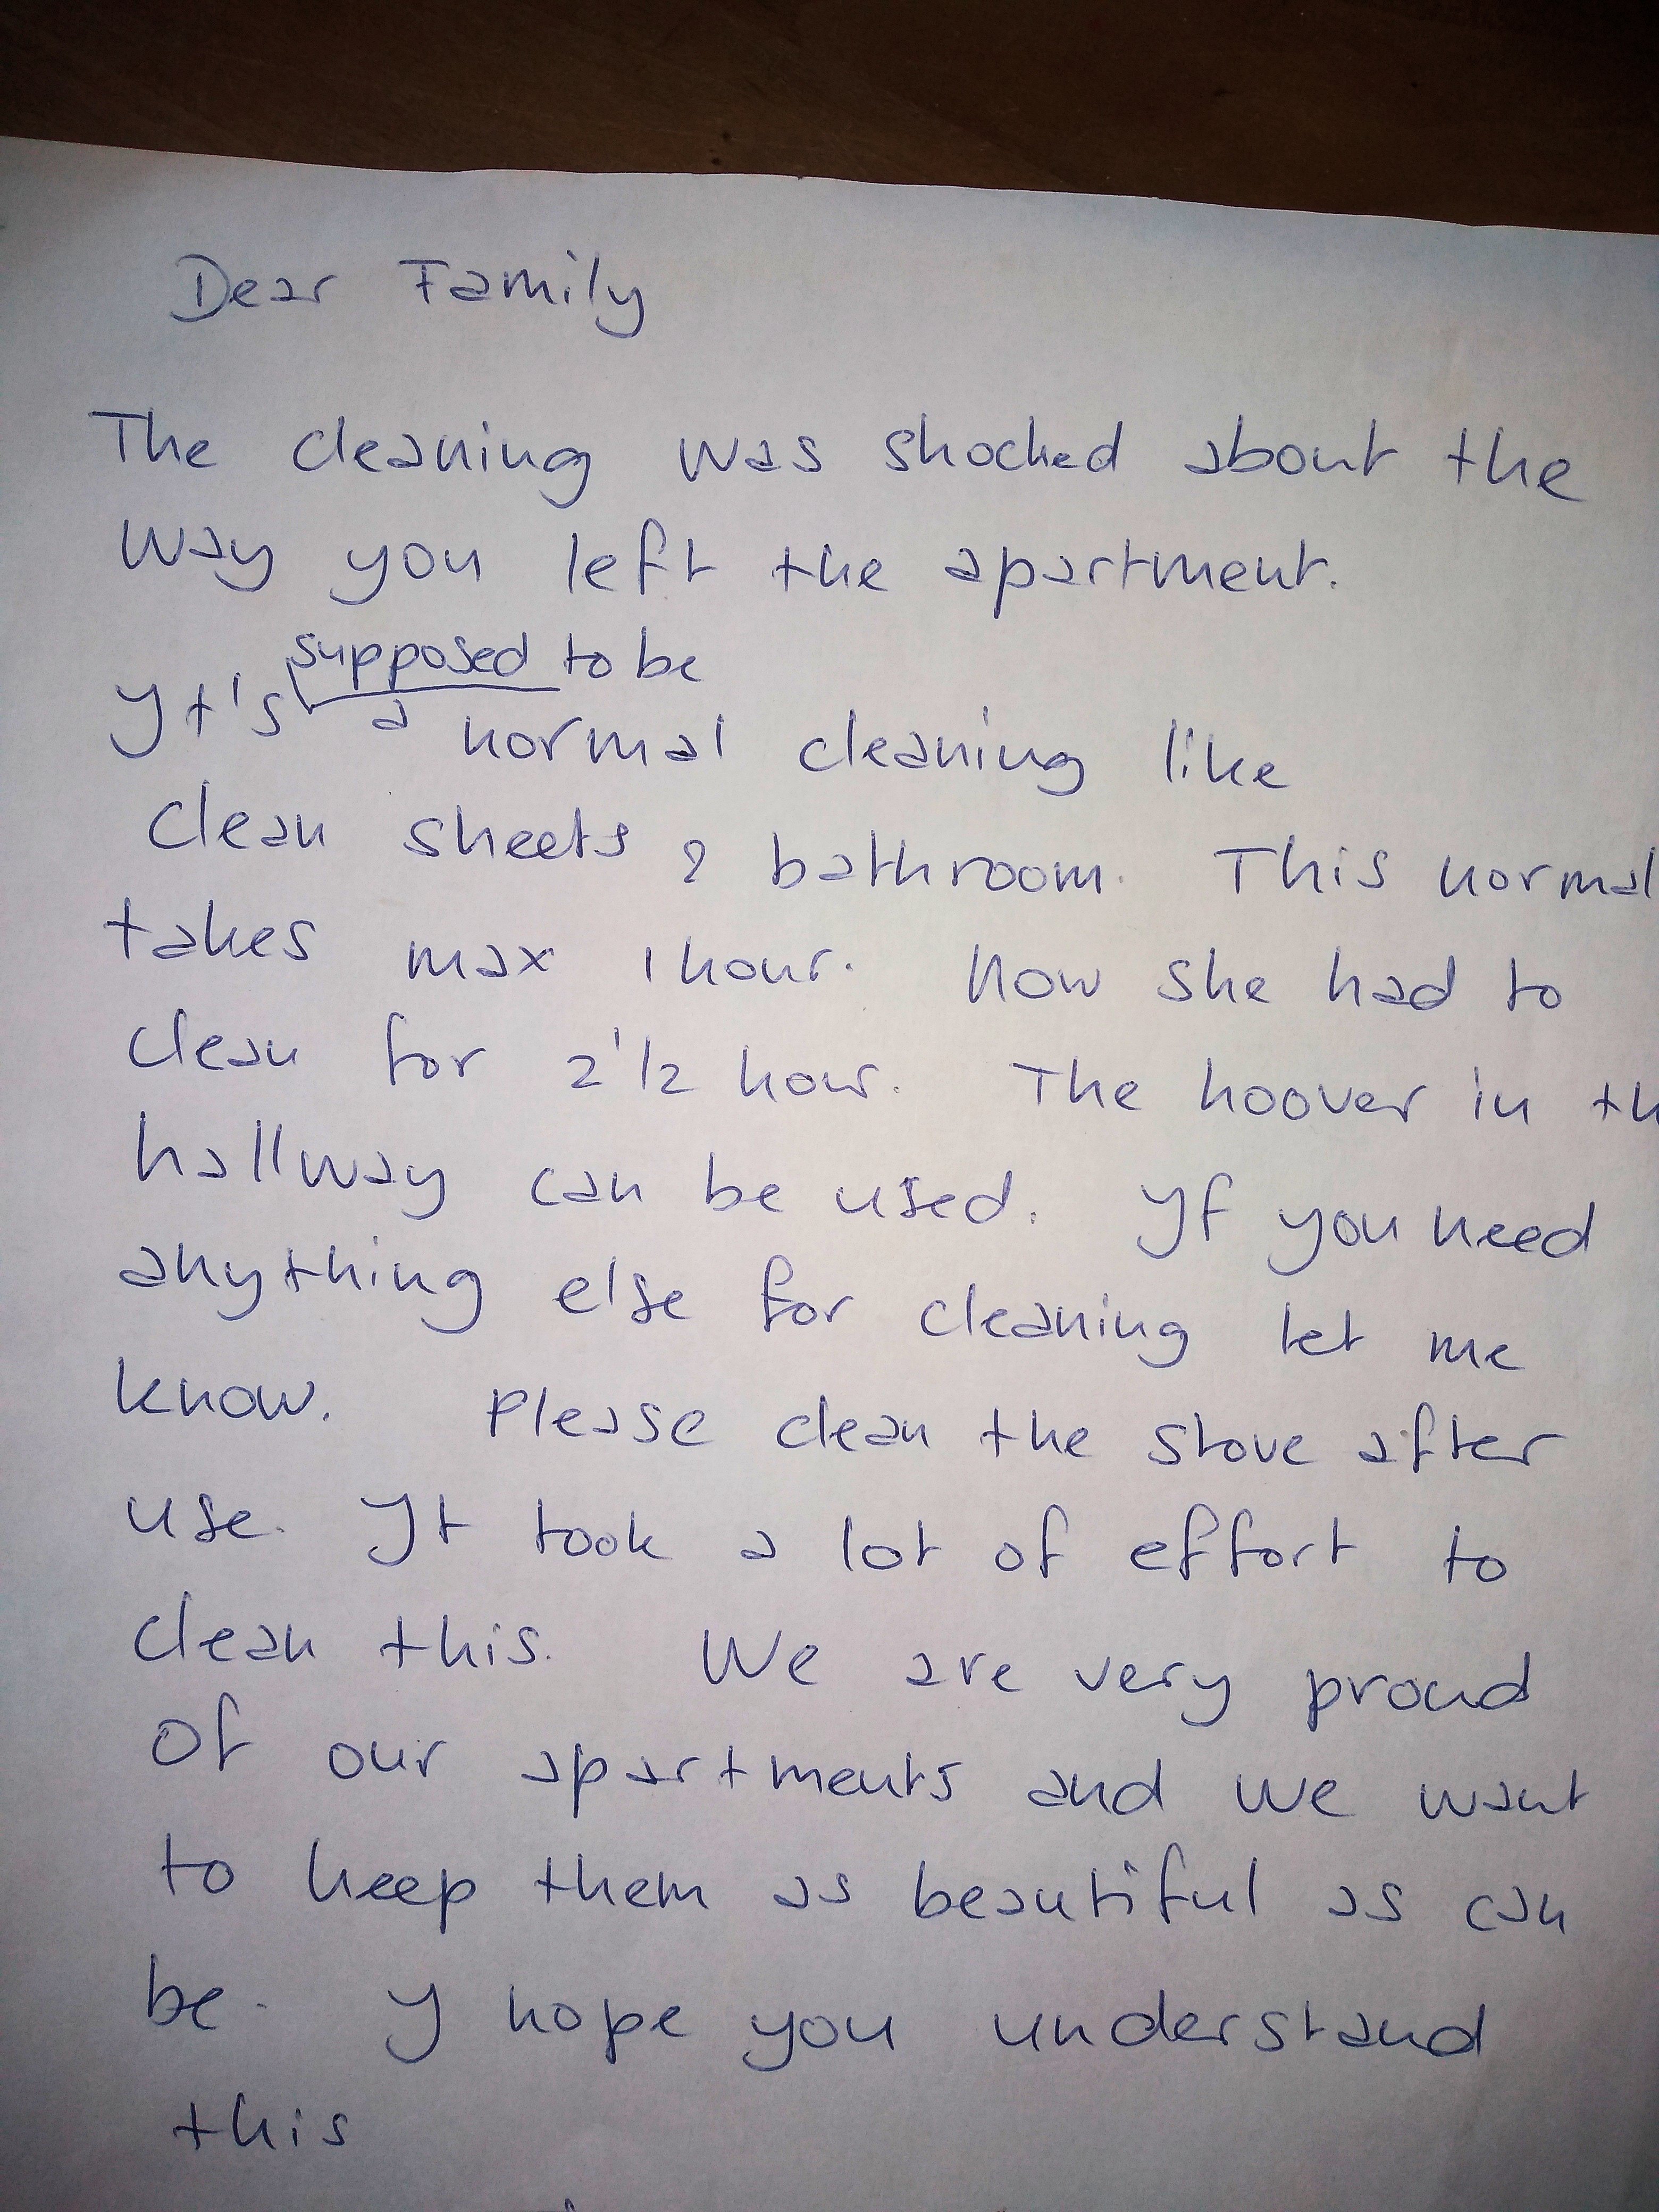 Dear Family
The cleaning was shocked about the
way you left the apartment.
supposed to be
Yt's a normal cleaning like
clean sheets & bathroom. This normal
takes max 1 hour. Now she had to
clean for 2 1/2 hour. The hoover in th
hallway can be used. Yf you need
anything else for cleaning let me
know. Please clean the stove after
use. Yt took a lot of effort to
clean this. We are very proud
of our apartments and we want
to keep them as beautiful as can
be. Y hope you understand
this